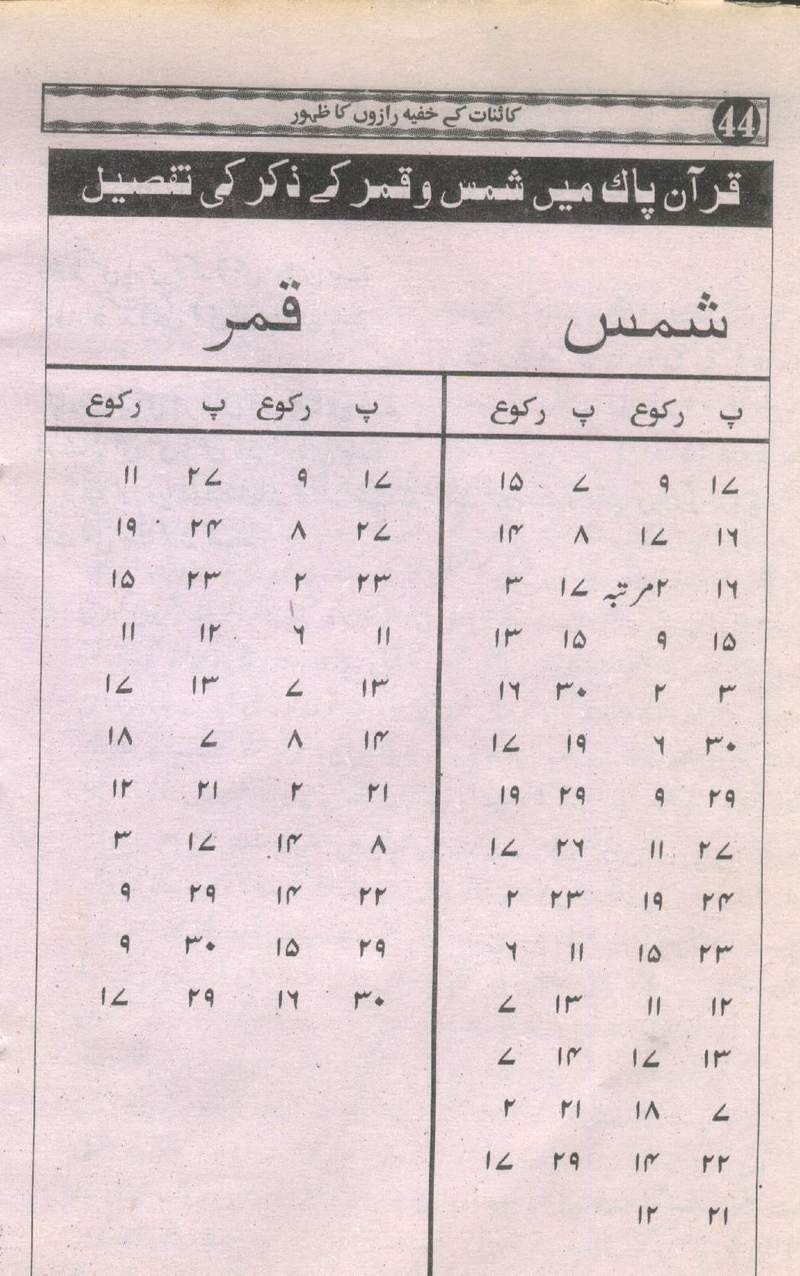 44 کائنات کے خفیہ رازوں کا ظہور
قرآن پاک میں شمس و قمر کے ذکر کی تفصیل
شمس قمر
پ رکوع پ رکوع پ رکوع پ رکوع
۱۷ ۹ ۷ ۱۵ ۱۷ ۹ ۲۷ ۱۱
۱۶ ۱۷ ۸ ۱۴ ۲۷ ۸ ۲۴ ۱۹
۱۶ ۲مرتبہ ۱۷ ۳ ۲۳ ۲ ۲۳ ۱۵
۱۵ ۹ ۱۵ ۱۳ ۱۱ ۶ ۱۲ ۱۱
۳ ۲ ۳۰ ۱۶ ۱۳ ۷ ۱۳ ۱۷
۳۰ ۶ ۱۹ ۱۷ ۱۴ ۸ ۷ ۱۸
۲۹ ۹ ۲۹ ۱۹ ۲۱ ۲ ۲۱ ۱۲
۲۷ ۱۱ ۲۶ ۱۷ ۸ ۱۴ ۱۷ ۳
۲۴ ۱۹ ۲۳ ۲ ۲۲ ۱۴ ۲۹ ۹
۲۳ ۱۵ ۱۱ ۶ ۲۹ ۱۵ ۳۰ ۹
۱۲ ۱۱ ۱۳ ۷ ۳۰ ۱۶ ۲۹ ۱۷
۱۳ ۱۷ ۱۴ ۷
۷ ۱۸ ۲۱ ۲
۲۲ ۱۴ ۲۹ ۱۷
۲۱ ۱۲